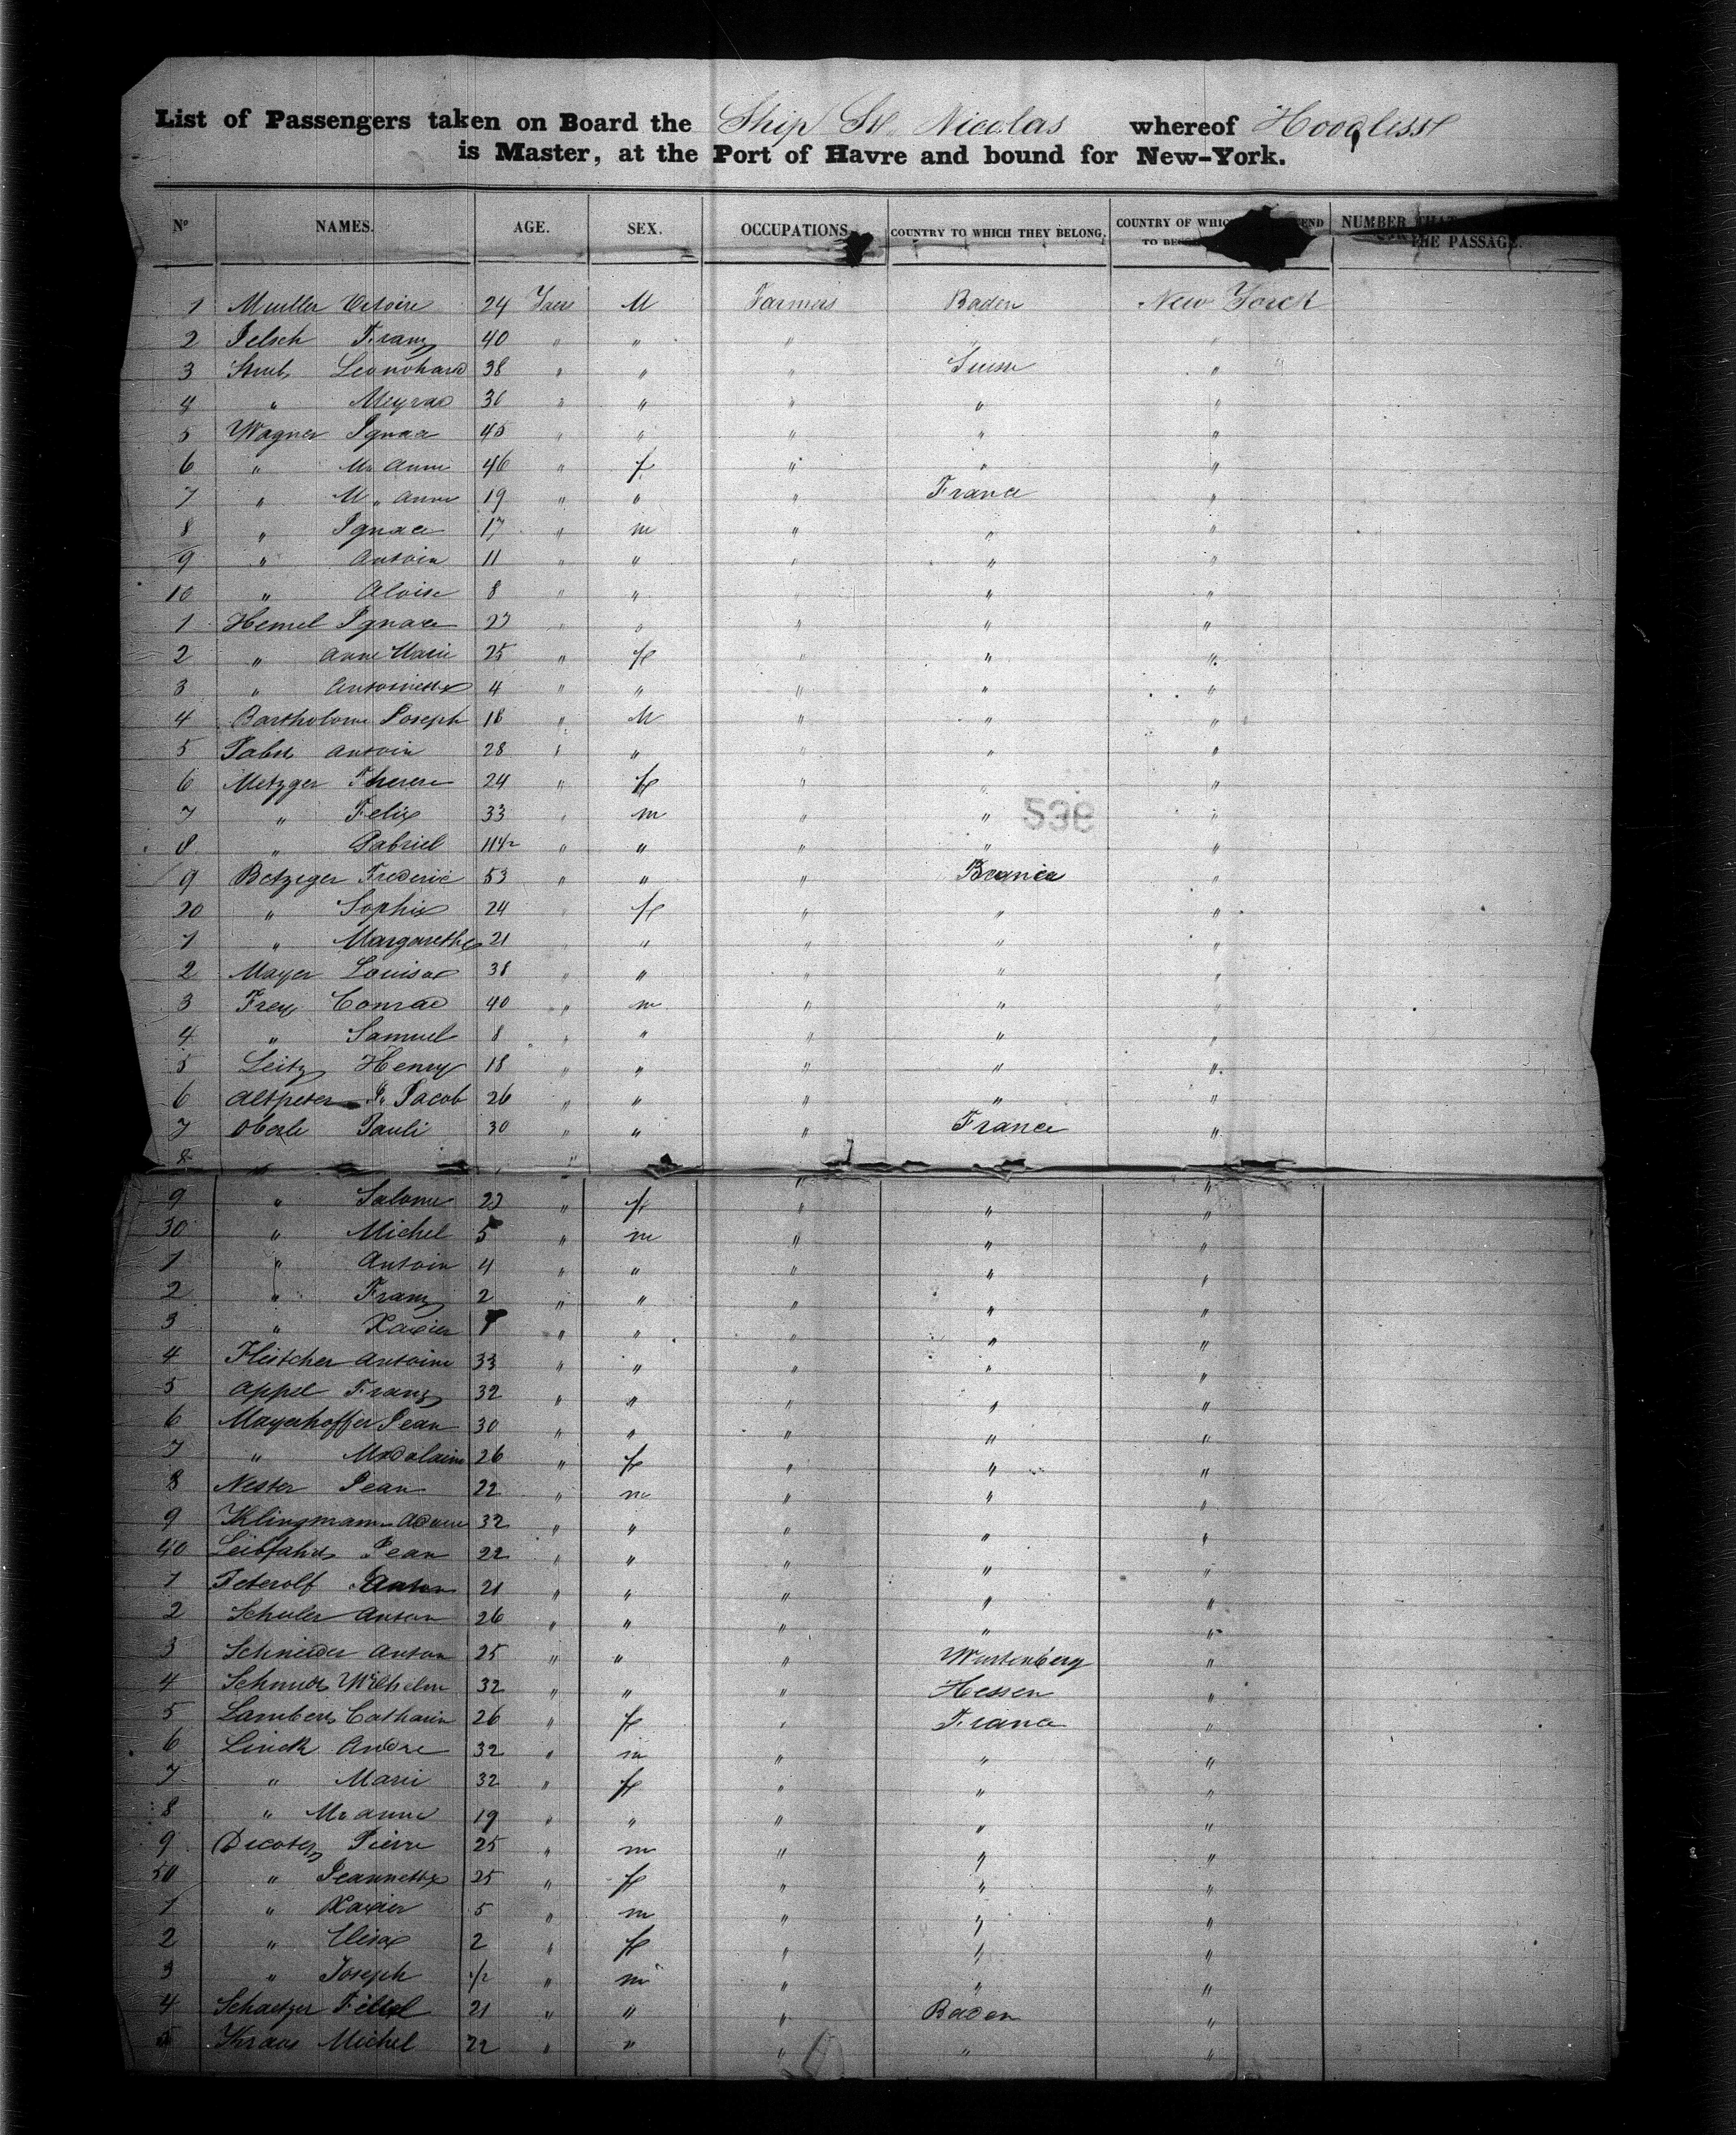 List of Passengers taken on Board the Ship St. Nicolas whereof
is Master, at the Port of Havre and bound for New-York.
N° NAMES. AGE. SEX. OCCUPATIONS COUNTRY TO WHICH THEY BELONG. COUNTRY OF WHICH NUMBER THAT
THE PASSAGE.
1 Muller 24 Years M Farmers Baden New Yorck
2 Franz 40 " " " "
3 Leonohard 38 " " " Suisse "
4 " Meyrad 36 " " " " "
5 Wagner Ignace 45 " " " " "
6 " M. Anne 46 " f " " "
7 " M. Anne 19 " " " France "
8 " Ignace 17 " m " " "
9 " Antoin 11 " " " " "
10 " Aloise 8 " " " " "
1 Hemel Ignace 27 " " " " "
2 " Anne Marie 25 " f " " "
3 " Antoinette 4 " " " " "
4 Bartholome Joseph 18 " M " " "
5 Pabst Antoin 28 " " " " "
6 Metzger Therese 24 " f " " "
7 " Felix 33 " m " " "
538
8 " Gabriel 11 1/2 " " " " "
9 Betzeger Frederic 53 " " " "
20 " Sophie 24 " f " " "
1 " Margarethe 21 " " " " "
2 Mayer Louisa 38 " " " " "
3 Frey Conrad 40 " m " " "
4 " Samuel 8 " " " " "
5 Leitz Henry 18 " " " " "
6 Altpeter P. Jacob 26 " " " " "
7 Oberle Pauli 30 " " " France "
8 "
9 " Salome 23 " f " " "
30 " Michel 5 " m " " "
1 " Antoin 4 " " " " "
2 " Franz 2 " " " " "
3 " Xavier " " " " "
4 Fletcher Antoine 33 " " " " "
5 Appel Franz 32 " " " " "
6 Mayerhoffer Jean 30 " " " " "
7 " Madalaine 26 " f " " "
8 Nester Jean 22 " m " " "
9 Klingmann Adam 32 " " " " "
40 Leibfahrt Jean 22 " " " " "
1 Feterolf Anton 21 " " " " "
2 Schuler Anton 26 " " " " "
3 Schneider Anton 25 " " " Wurtenberg "
4 Schmidt Wilhelm 32 " " " Hessen "
5 Lambert Catharin 26 " f " France "
6 Linck Andre 32 " m " " "
7 " Marie 32 " f " " "
8 " M. anne 19 " " " " "
9 Decoter Pierre 25 " m " " "
50 " Jeannette 25 " f " " "
1 " Xavier 5 " m " " "
2 " Elisa 2 " f " " "
3 " Joseph 1/2 " m " " "
4 Schaetzer 21 " " " Baden "
5 Kraus Michel 22 " " " " "